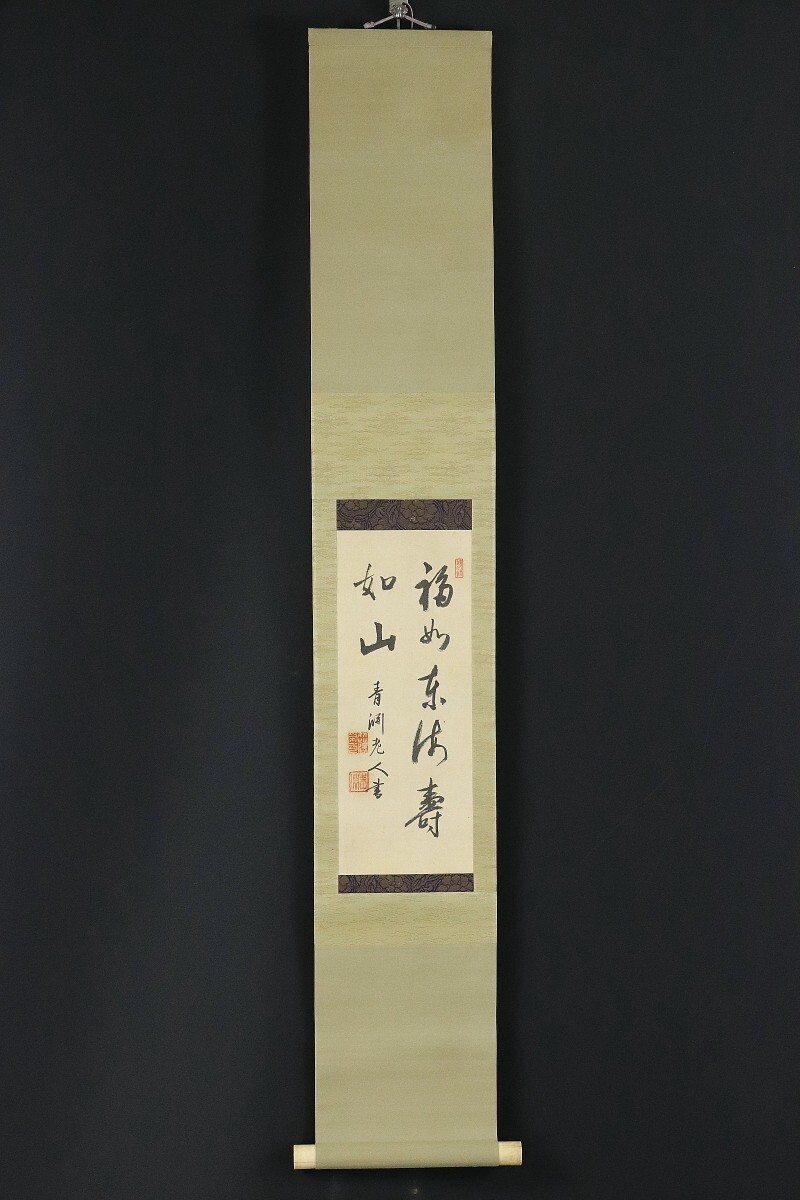 福如东海壽
如山
青渊老人書